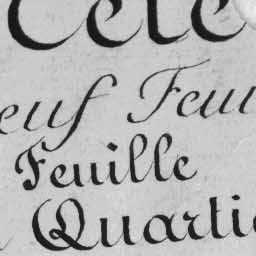 Cele
euf Feui
Feuille
Quarti